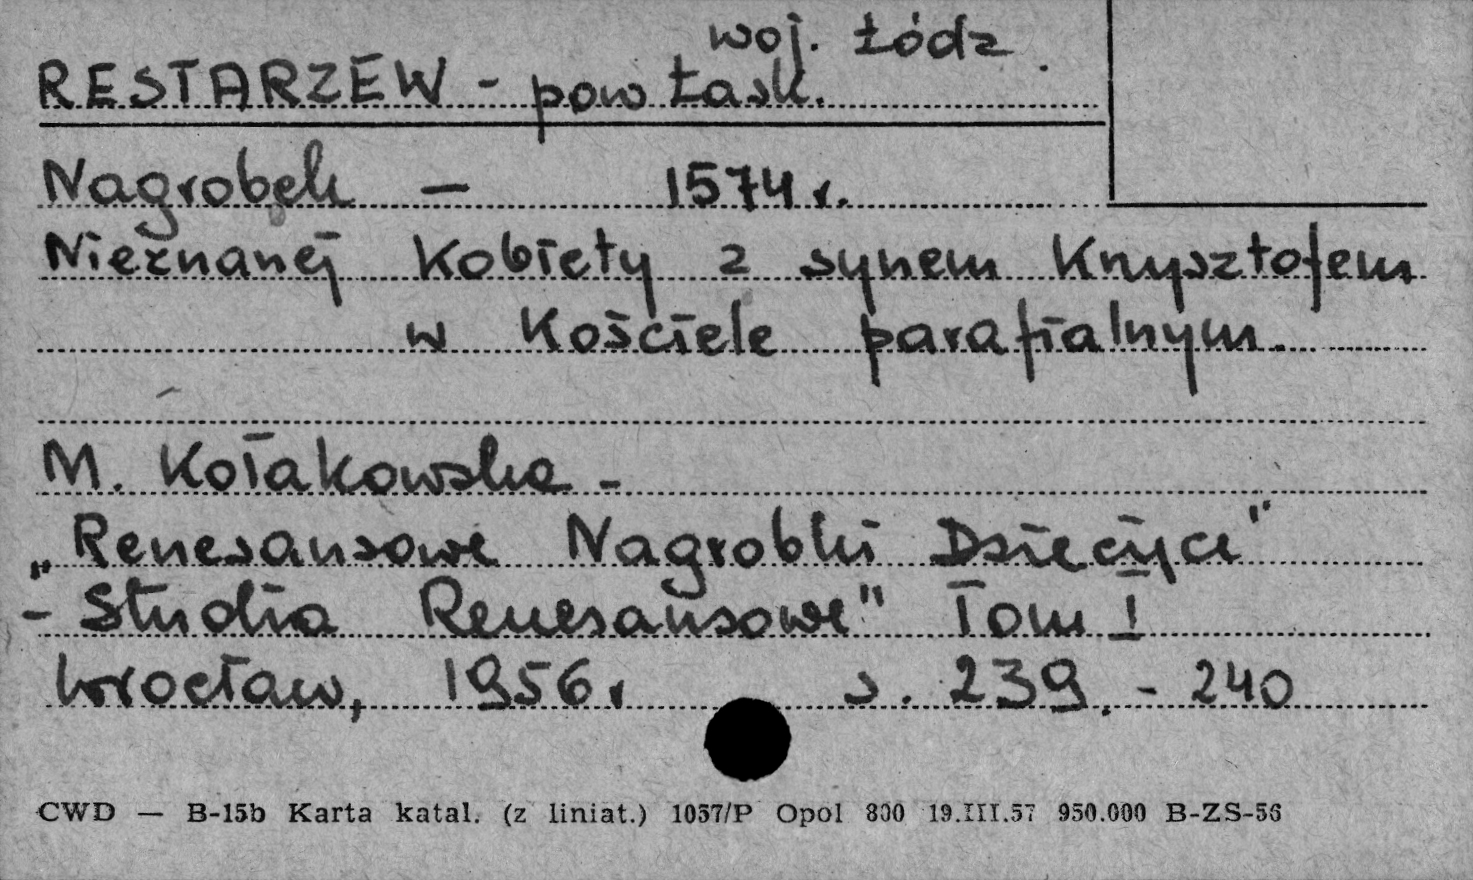 woj. Łódz.
RESTARZEW - pow Łask.
Nagrobek — 1574 r.
Nieznanej Kobiety z synem Krzysztofem
w Kościele parafialnym.
M. Kołakowska -
„Renesansowe Nagrobki Dziecięce"
- Studia Renesansowe" Tom I
Wrocław, 1956 r s. 239. - 240
CWD — B-15b Karta katal. (z liniat.) 1057/P Opol 800 19.III.57 950.000 B-ZS-56